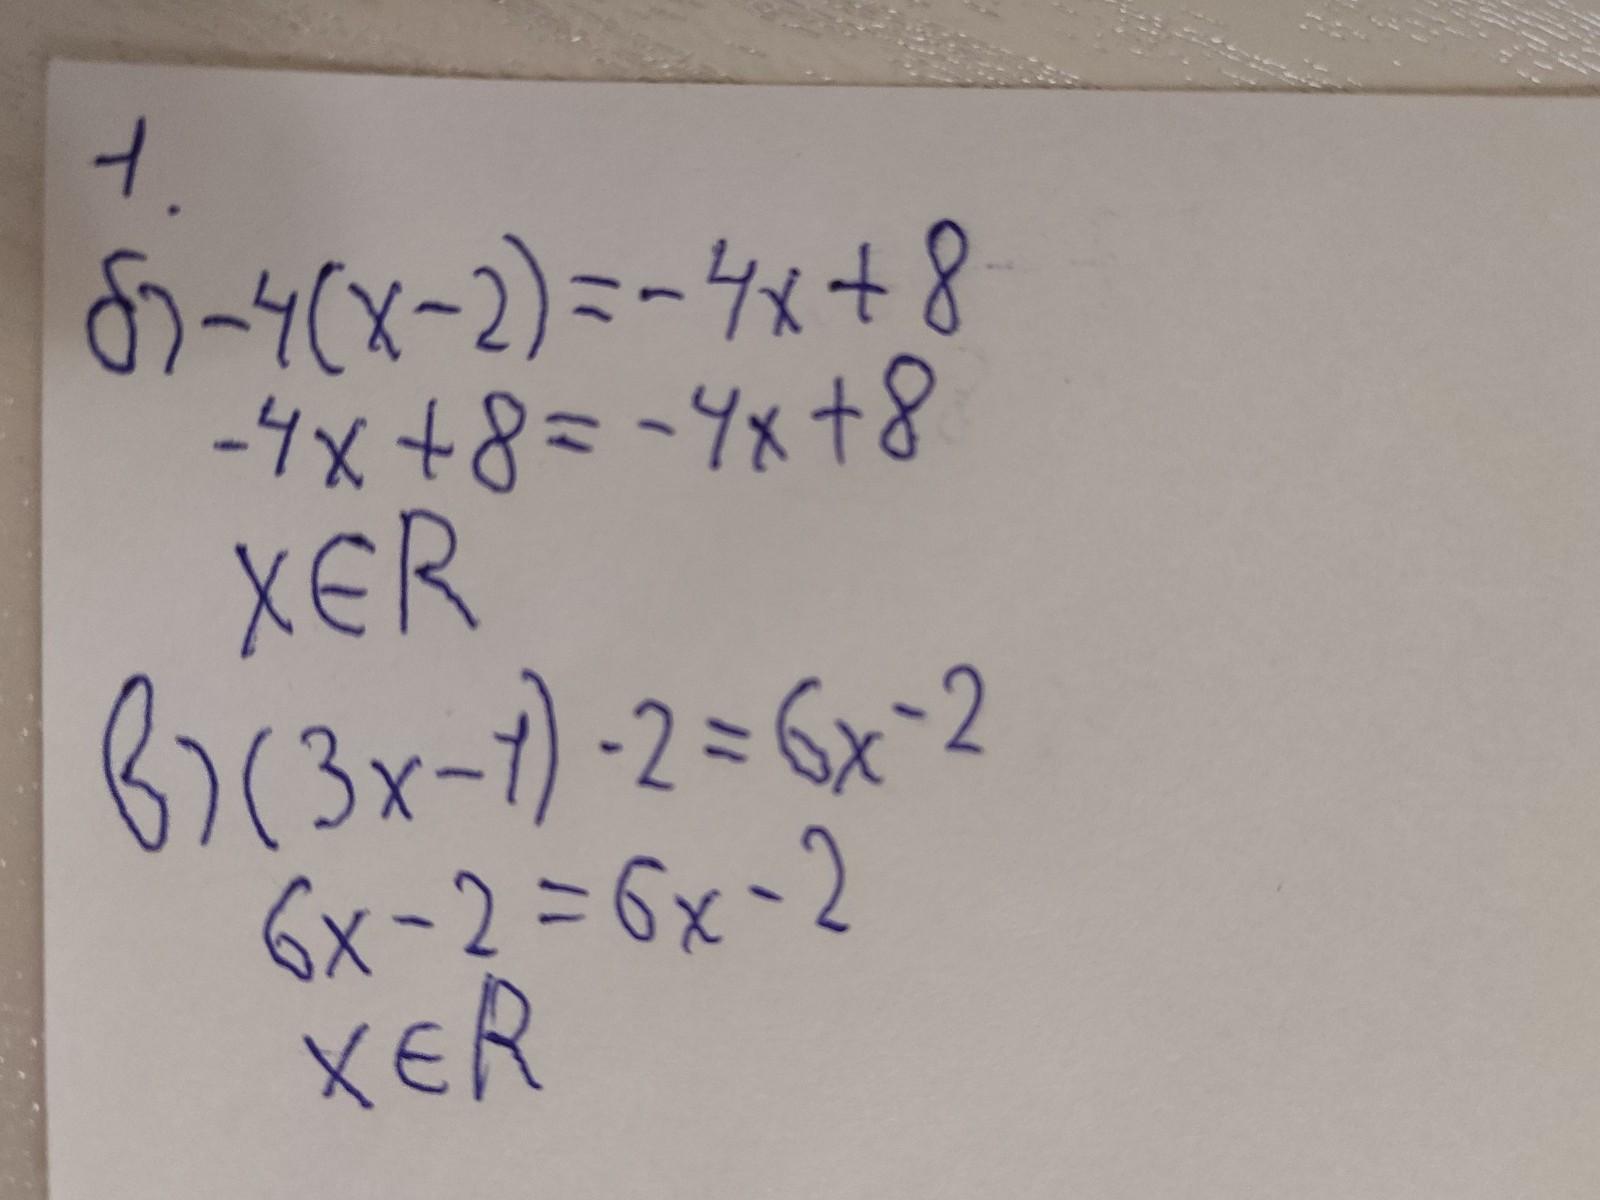 1.
б) -4(x-2)=-4x+8
-4x+8=-4x+8
x∈R
в) (3x-1)·2=6x-2
6x-2=6x-2
x∈R